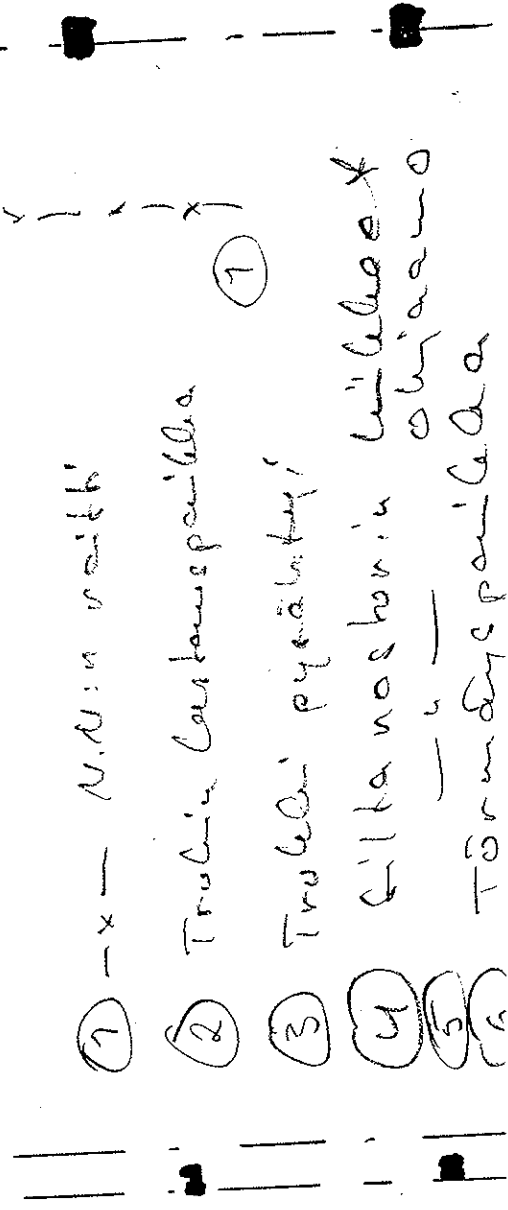 ① —x— N.N:n reitti
② Trukin lastauspaikka
③ Trukki pysähtyi
④ Siltanosturin liikkeet
⑤ —"— ohjaamo
⑥ Törmäyspaikka
①